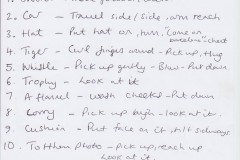 2. Car - Travel side/side. arm reach
3. Hat - Put hat on, turn "come on
4. Tiger - Curl fingers round - Pick up, Hug
5. Whistle - Pick up gently - Blow - Put down.
6. Trophy - Look at it
7. A flannel - wash cheeks - Put down
8. Lorry - Pick up high - look at it.
9. Cushion - Put face on it, tilt sideways
10. Tottham photo - Pick up, reach up
Look at it.